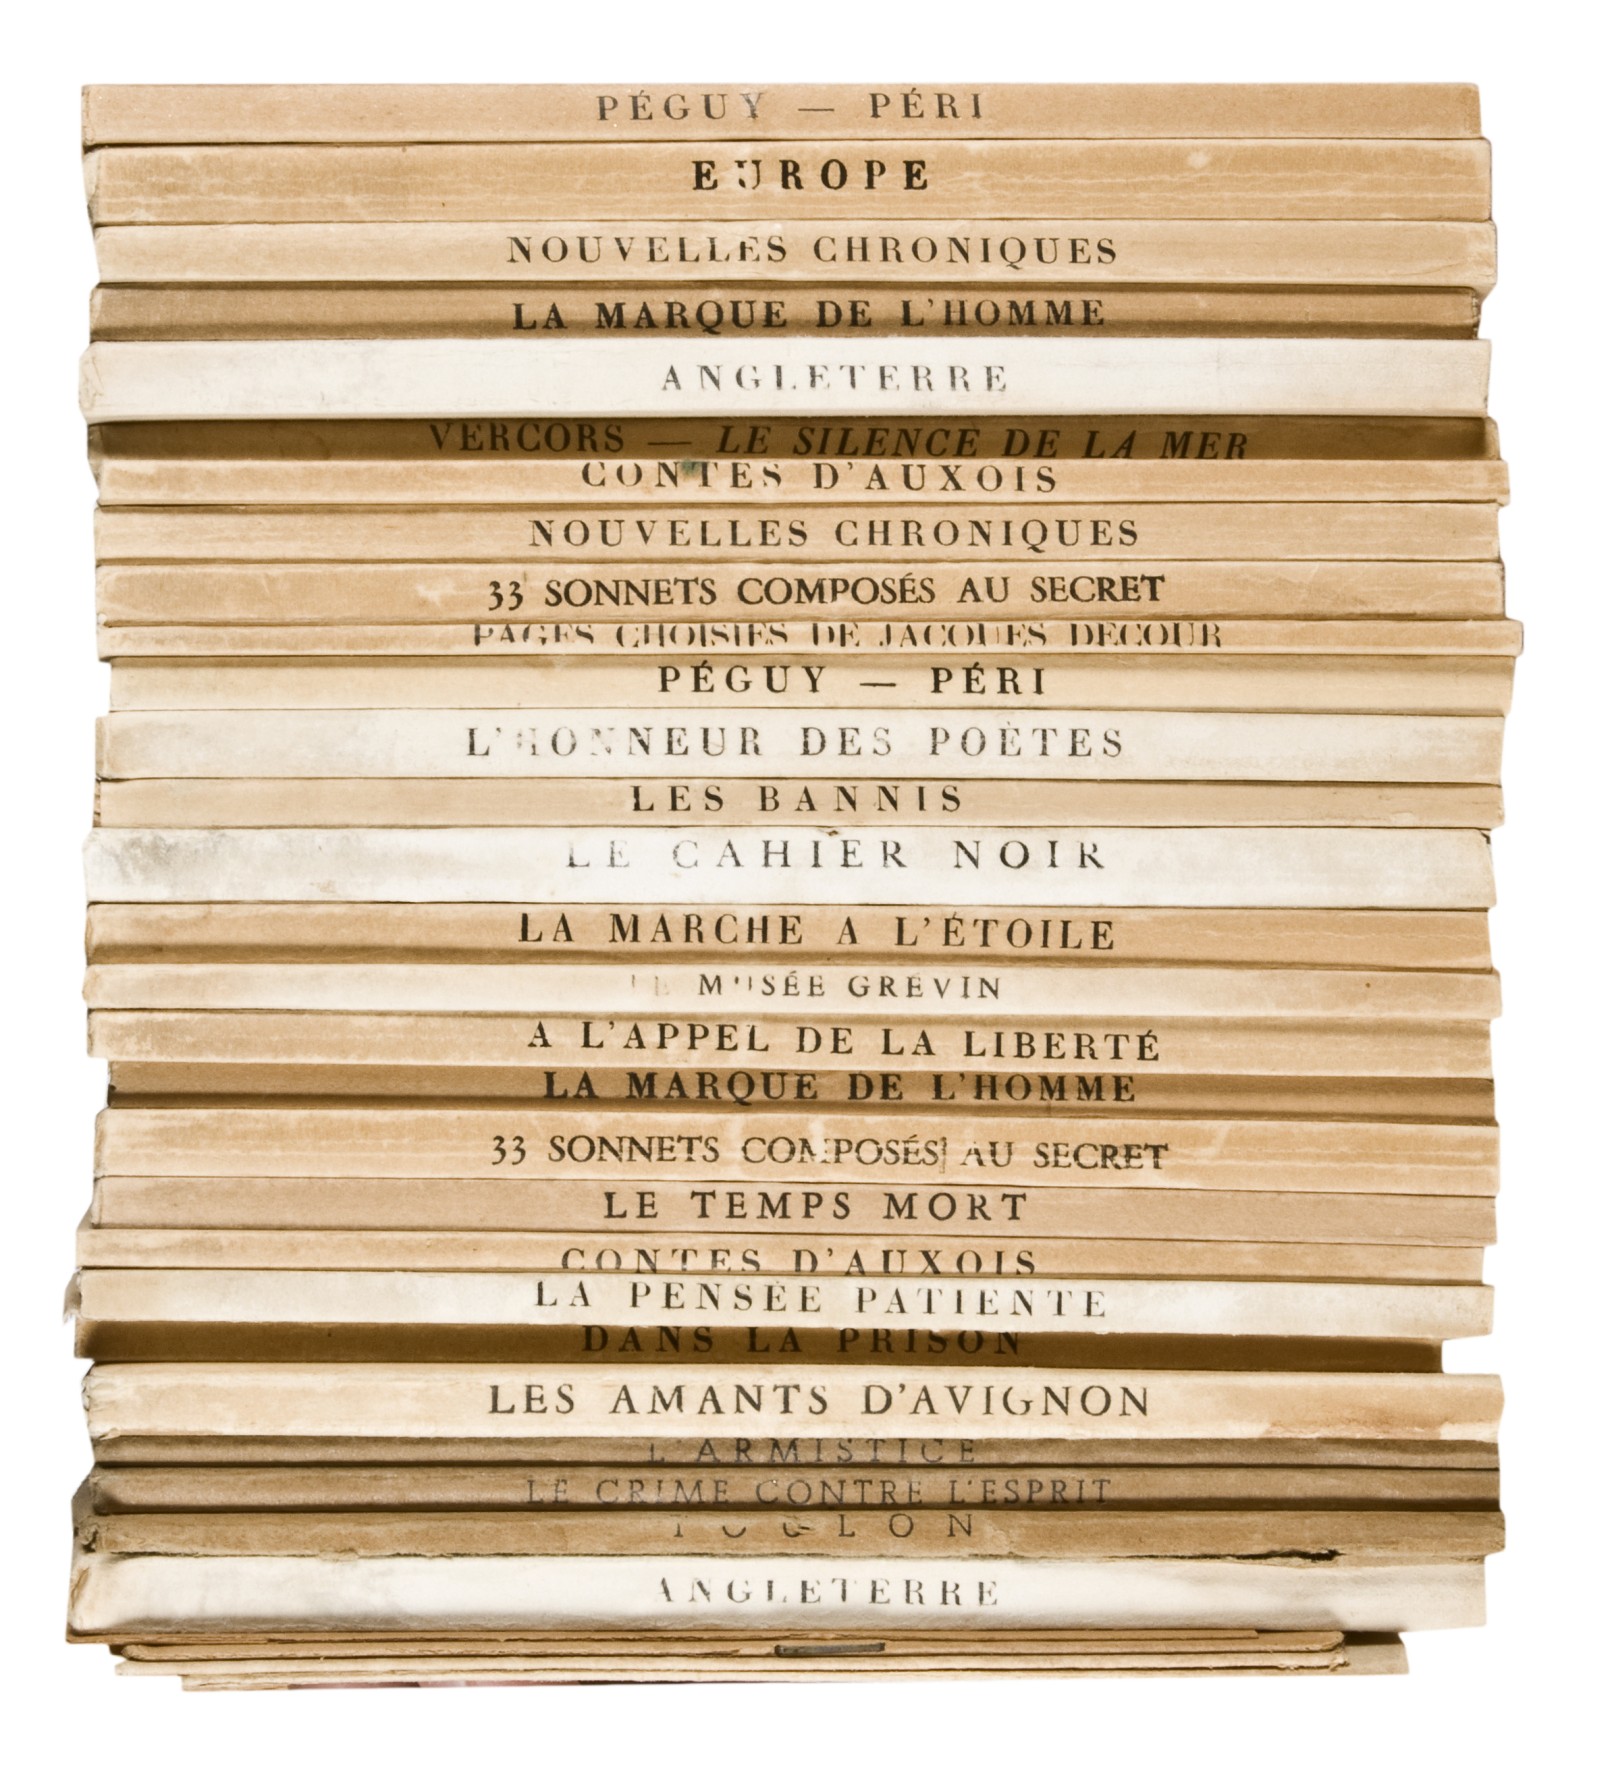 PÉGUY — PÉRI
EUROPE
NOUVELLES CHRONIQUES
LA MARQUE DE L'HOMME
ANGLETERRE
VERCORS — LE SILENCE DE LA MER
CONTES D'AUXOIS
NOUVELLES CHRONIQUES
33 SONNETS COMPOSÉS AU SECRET
PAGES CHOISIES DE JACQUES DECOUR
PÉGUY — PÉRI
L'HONNEUR DES POÈTES
LES BANNIS
LE CAHIER NOIR
LA MARCHE A L'ÉTOILE
LE MUSÉE GRÉVIN
A L'APPEL DE LA LIBERTÉ
LA MARQUE DE L'HOMME
33 SONNETS COMPOSÉS AU SECRET
LE TEMPS MORT
CONTES D'AUXOIS
LA PENSÉE PATIENTE
DANS LA PRISON
LES AMANTS D'AVIGNON
L'ARMISTICE
LE CRIME CONTRE L'ESPRIT
TOULON
ANGLETERRE